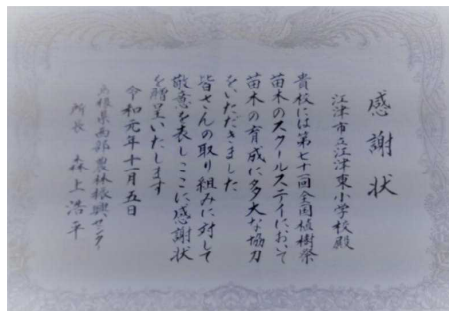 感謝状
江津市立江津東小学校殿
貴校には第七十一回全国植樹祭
苗木のスクールステイにおいて
苗木の育成に多大な協力
をいただきました
皆さんの取り組みに対して
敬意を表しここに感謝状
を贈呈いたします
令和元年十一月五日
島根県西部農林振興センター
所長 森上浩平